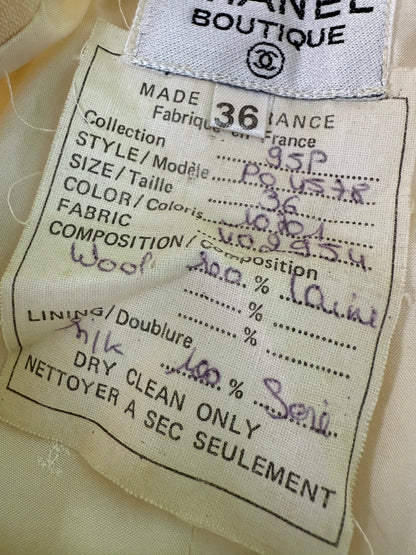 CHANEL
BOUTIQUE
MADE 36 RANCE
Fabriqué en France
Collection 95P
STYLE/Modèle P04578
SIZE/Taille 36
COLOR/Coloris 10101
FABRIC V02954
COMPOSITION/Composition
Wool 100 % Laine
%
LINING/Doublure %
Silk 100 % Soie
DRY CLEAN ONLY
NETTOYER A SEC SEULEMENT